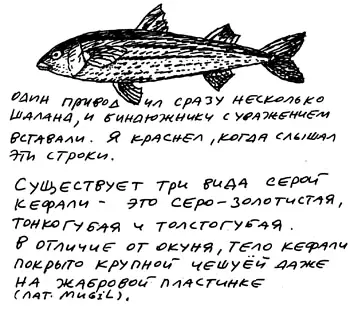 ОДИН ПРИВОДИЛ СРАЗУ НЕСКОЛЬКО
ШАЛАНД, И БИНДЮЖНИКИ С УВАЖЕНИЕМ
ВСТАВАЛИ. Я КРАСНЕЛ, КОГДА СЛЫШАЛ
ЭТИ СТРОКИ.
СУЩЕСТВУЕТ ТРИ ВИДА СЕРОЙ
КЕФАЛИ - ЭТО СЕРО-ЗОЛОТИСТАЯ,
ТОНКОГУБАЯ И ТОЛСТОГУБАЯ.
В ОТЛИЧИЕ ОТ ОКУНЯ, ТЕЛО КЕФАЛИ
ПОКРЫТО КРУПНОЙ ЧЕШУЁЙ ДАЖЕ
НА ЖАБРОВОЙ ПЛАСТИНКЕ
(ЛАТ. MUGIL).